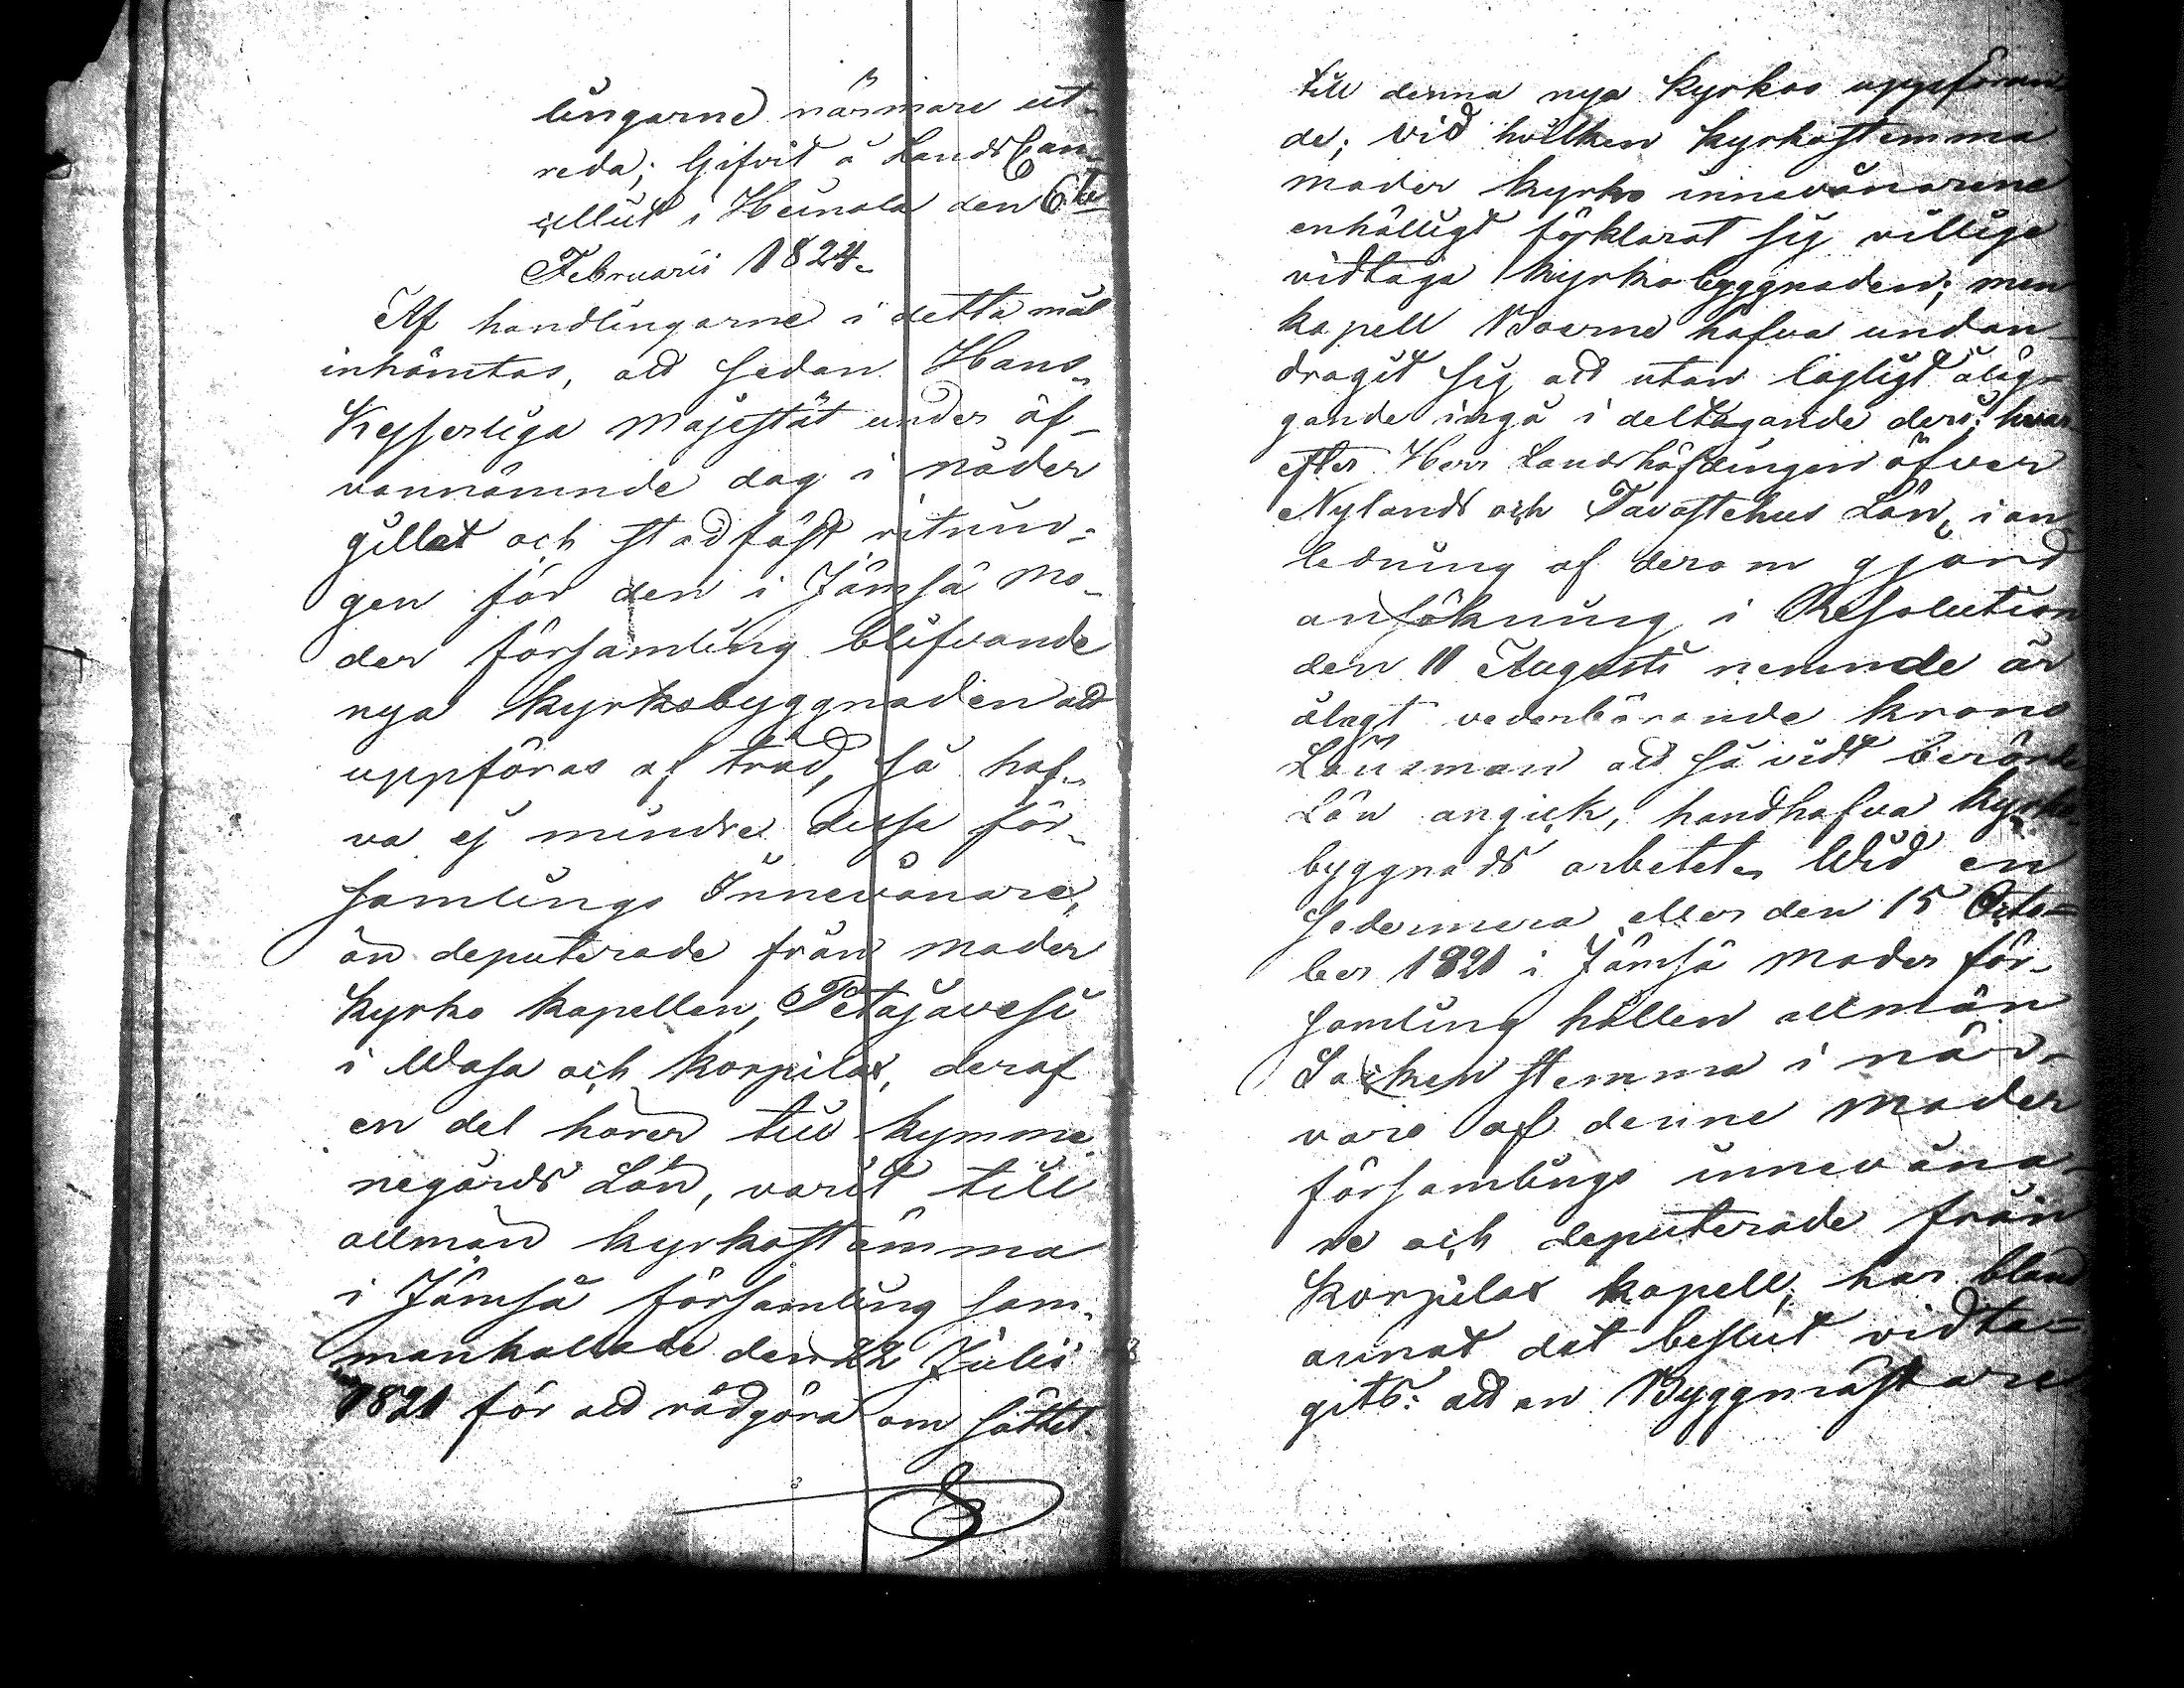 lingarne närmare ut-
reda; Gifvit å LandsCan-
celliet i Heinola den 6te
Februarii 1824.
Af handlingarne i detta mål
inhämtas, att sedan Hans
Kejserliga Majestät under of-
vannämnde dag i nåder
gillat och stadfäst ritnin-
gen för den i Jämsä Mo-
der församling blifvande
nya kyrkobyggnaden att
uppföras af träd, så haf-
va ej mindre desse för-
samlings Innevånare,
än deputerade från moder
kyrko kapellen, Petäjävesi
i Wasa och Korpilax, deraf
en del hörer till Kymme
negårds Län, varit till
allmän kyrkostämma
i Jämsä församling sam-
mankallade den 22 Julii
1821 för att rådgöra om sättet
till denna nya kyrkas uppföran-
de; vid hvilken kyrkostemma
moder kyrko innevånarene
enhälligt förklarat sig villige
vidtaga kyrkobyggnaden; men
kapell Boerne hafva undan-
dragit sig att utan lagligt åläg-
gande ingå i deltagande deri; hvar
efter Herr Landshöfdingen öfver
Nylands och Tavastehus Län, i an-
ledning af derom gjord
ansökning i Resolution
den 11 Augusti nemnde år
ålagt vederbörande krono
Länsman att så vidt berörde
Län angick, handhafva kyrko-
byggnads arbetet. Wid en
sedermera eller den 15 Octo-
ber 1821 i Jämsä Moder för-
samling hållen allmän
Sockenstemma i när-
varo af denne Moder
församlings innevåna-
re och deputerade från
Korpilax kapell, har bland
annat det beslut vidta-
gits: att en Byggmästare